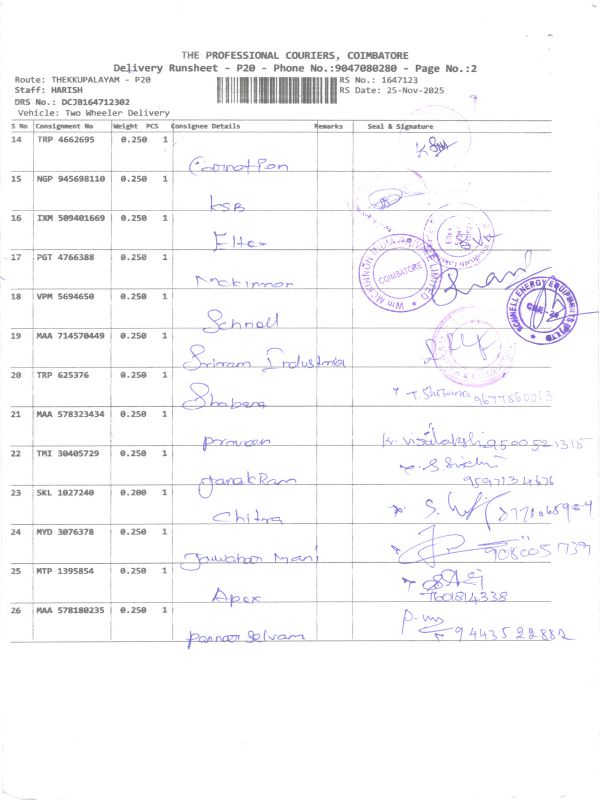 THE PROFESSIONAL COURIERS, COIMBATORE
Delivery Runsheet - P20 - Phone No.:9047080280 - Page No.:2
Route: THEKKUPALAYAM - P20 RS No.: 1647123
Staff: HARISH RS Date: 25-Nov-2025
DRS No.: DCJB164712302
Vehicle: Two Wheeler Delivery
S No Consignment No Weight PCS Consignee Details Remarks Seal & Signature
14 TRP 4662695 0.250 1
15 NGP 945698110 0.250 1
KSB
16 IXM 509401669 0.250 1
Eltex
17 PGT 4766388 0.250 1
COIMBATORE
Mckinnon
18 VPM 5694650 0.250 1
SCHNELL ENERGY EQUIPMENTS (P) LTD
Schnell
19 MAA 714570449 0.250 1
Sriram Industries
20 TRP 625376 0.250 1
Shobana T Shobana 9677860053
21 MAA 578323434 0.250 1
Praveen K. Visalakshi 9500521315
22 TMI 30405729 0.250 1
Janak Ram 9597134676
23 SKL 1027240 0.200 1
Chitra
24 MYD 3076378 0.250 1
Jawahar Mani 9080051739
25 MTP 1395854 0.250 1
Apex 7601814338
26 MAA 578180235 0.250 1
Panneer Selvam 9443522882